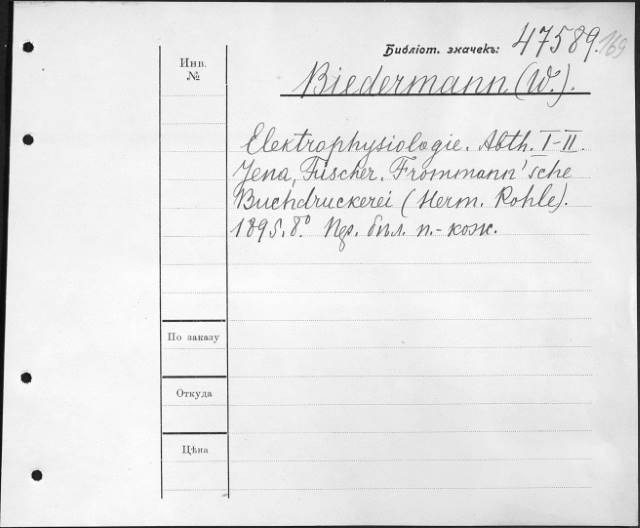 Библіот. значекъ: 47589. 169
Инв.
№
Biedermann (W.).
Elektrophysiologie. Abth. I-II.
Jena, Fischer. Frommann'sche
Buchdruckerei (Herm. Pohle).
1895. 8° Пер. бпл. п.-кож.
По заказу
Откуда
Цѣна